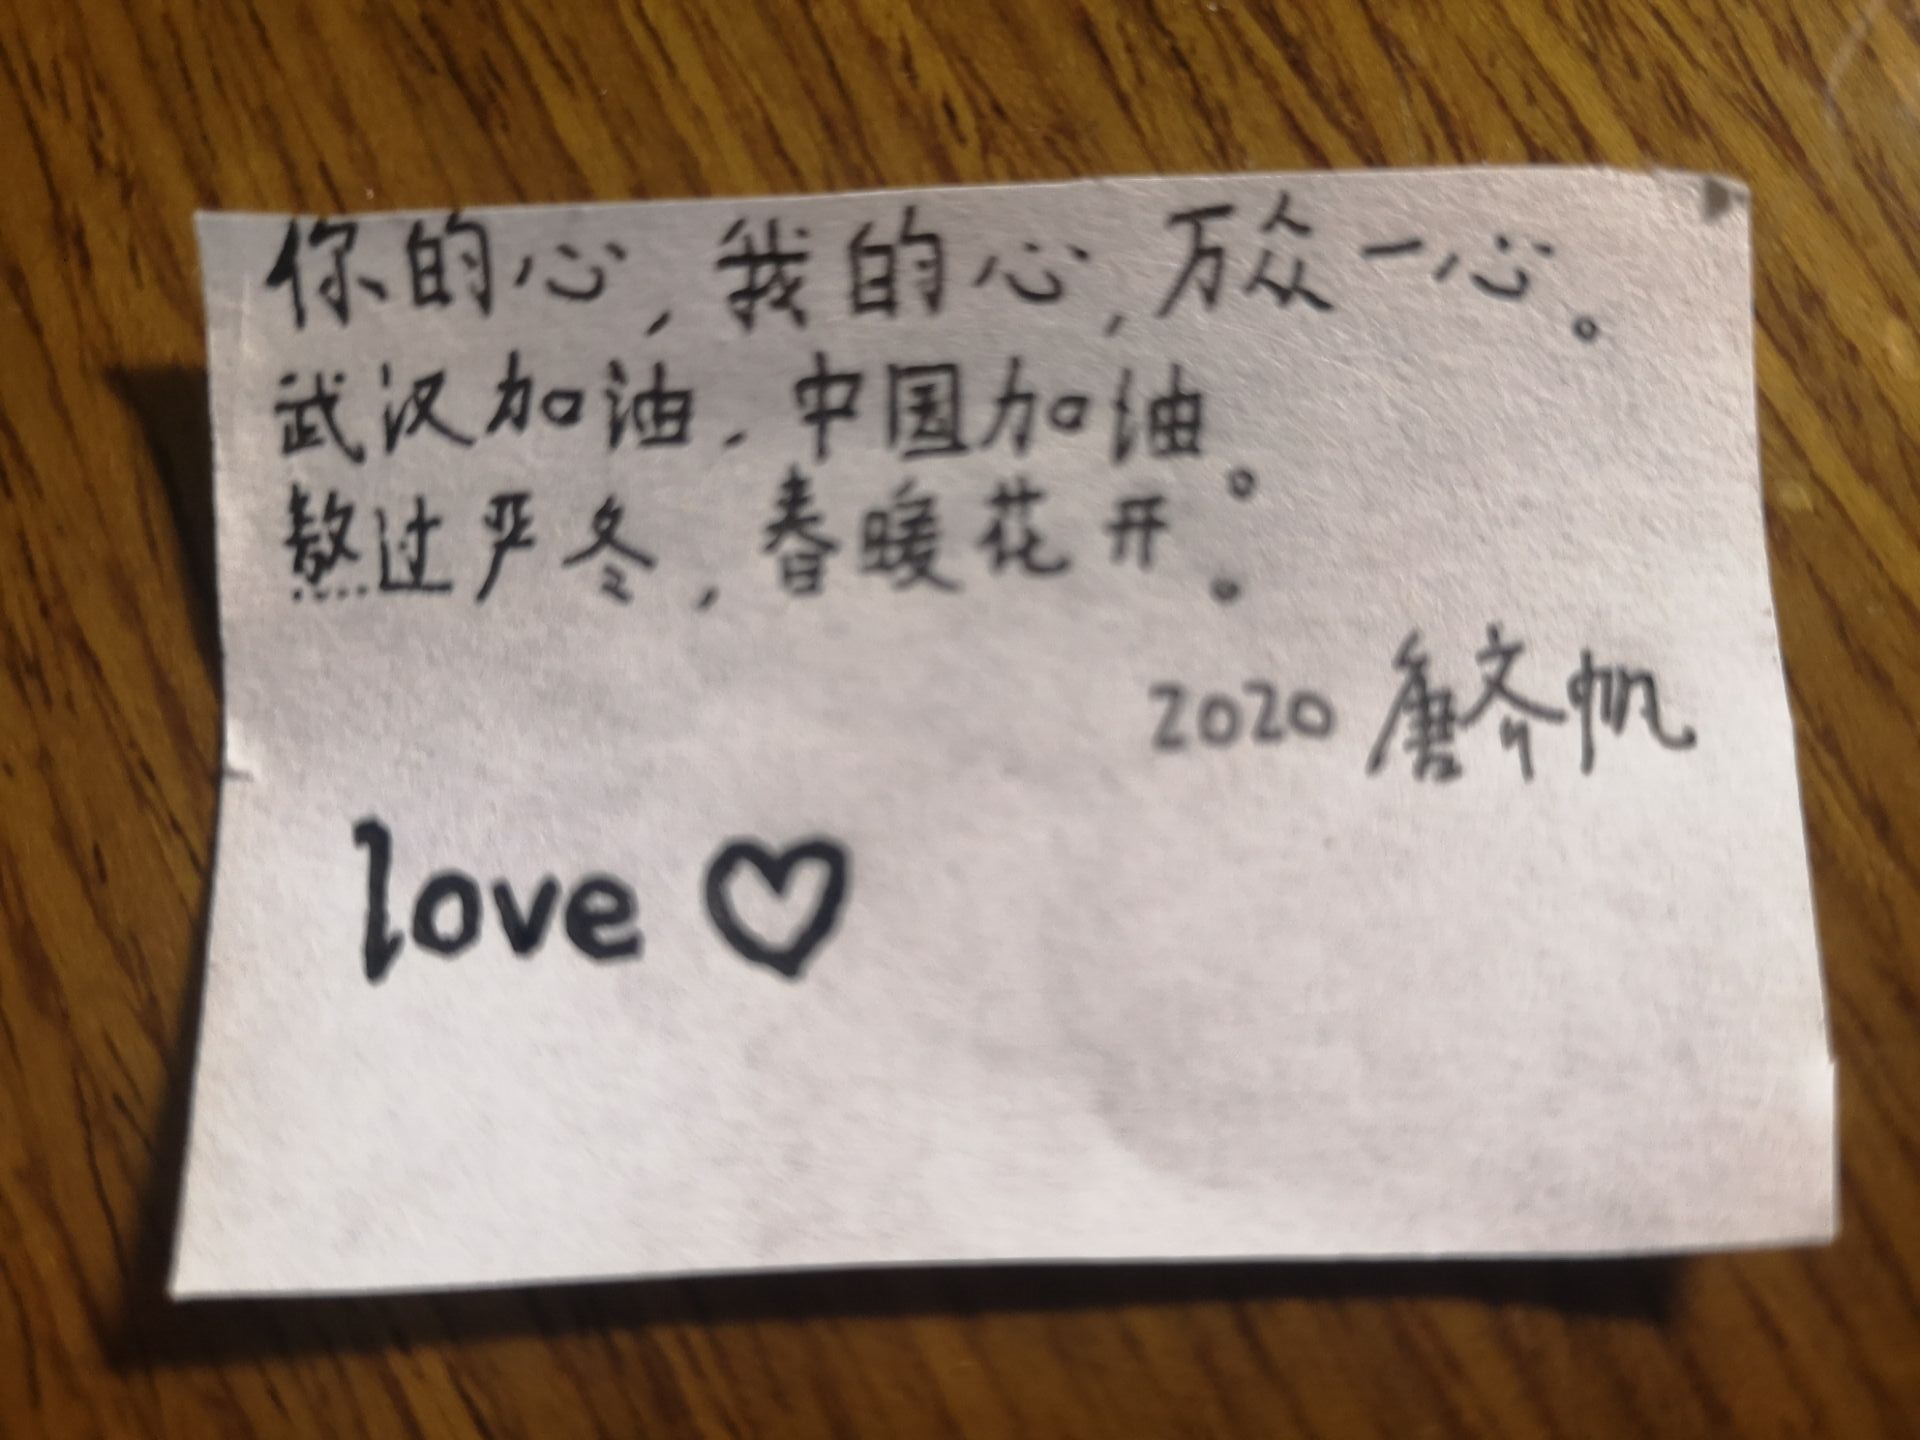 你的心,我的心,万众一心。
武汉加油,中国加油。
熬过严冬,春暖花开。
2020 唐齐帆
love ♡